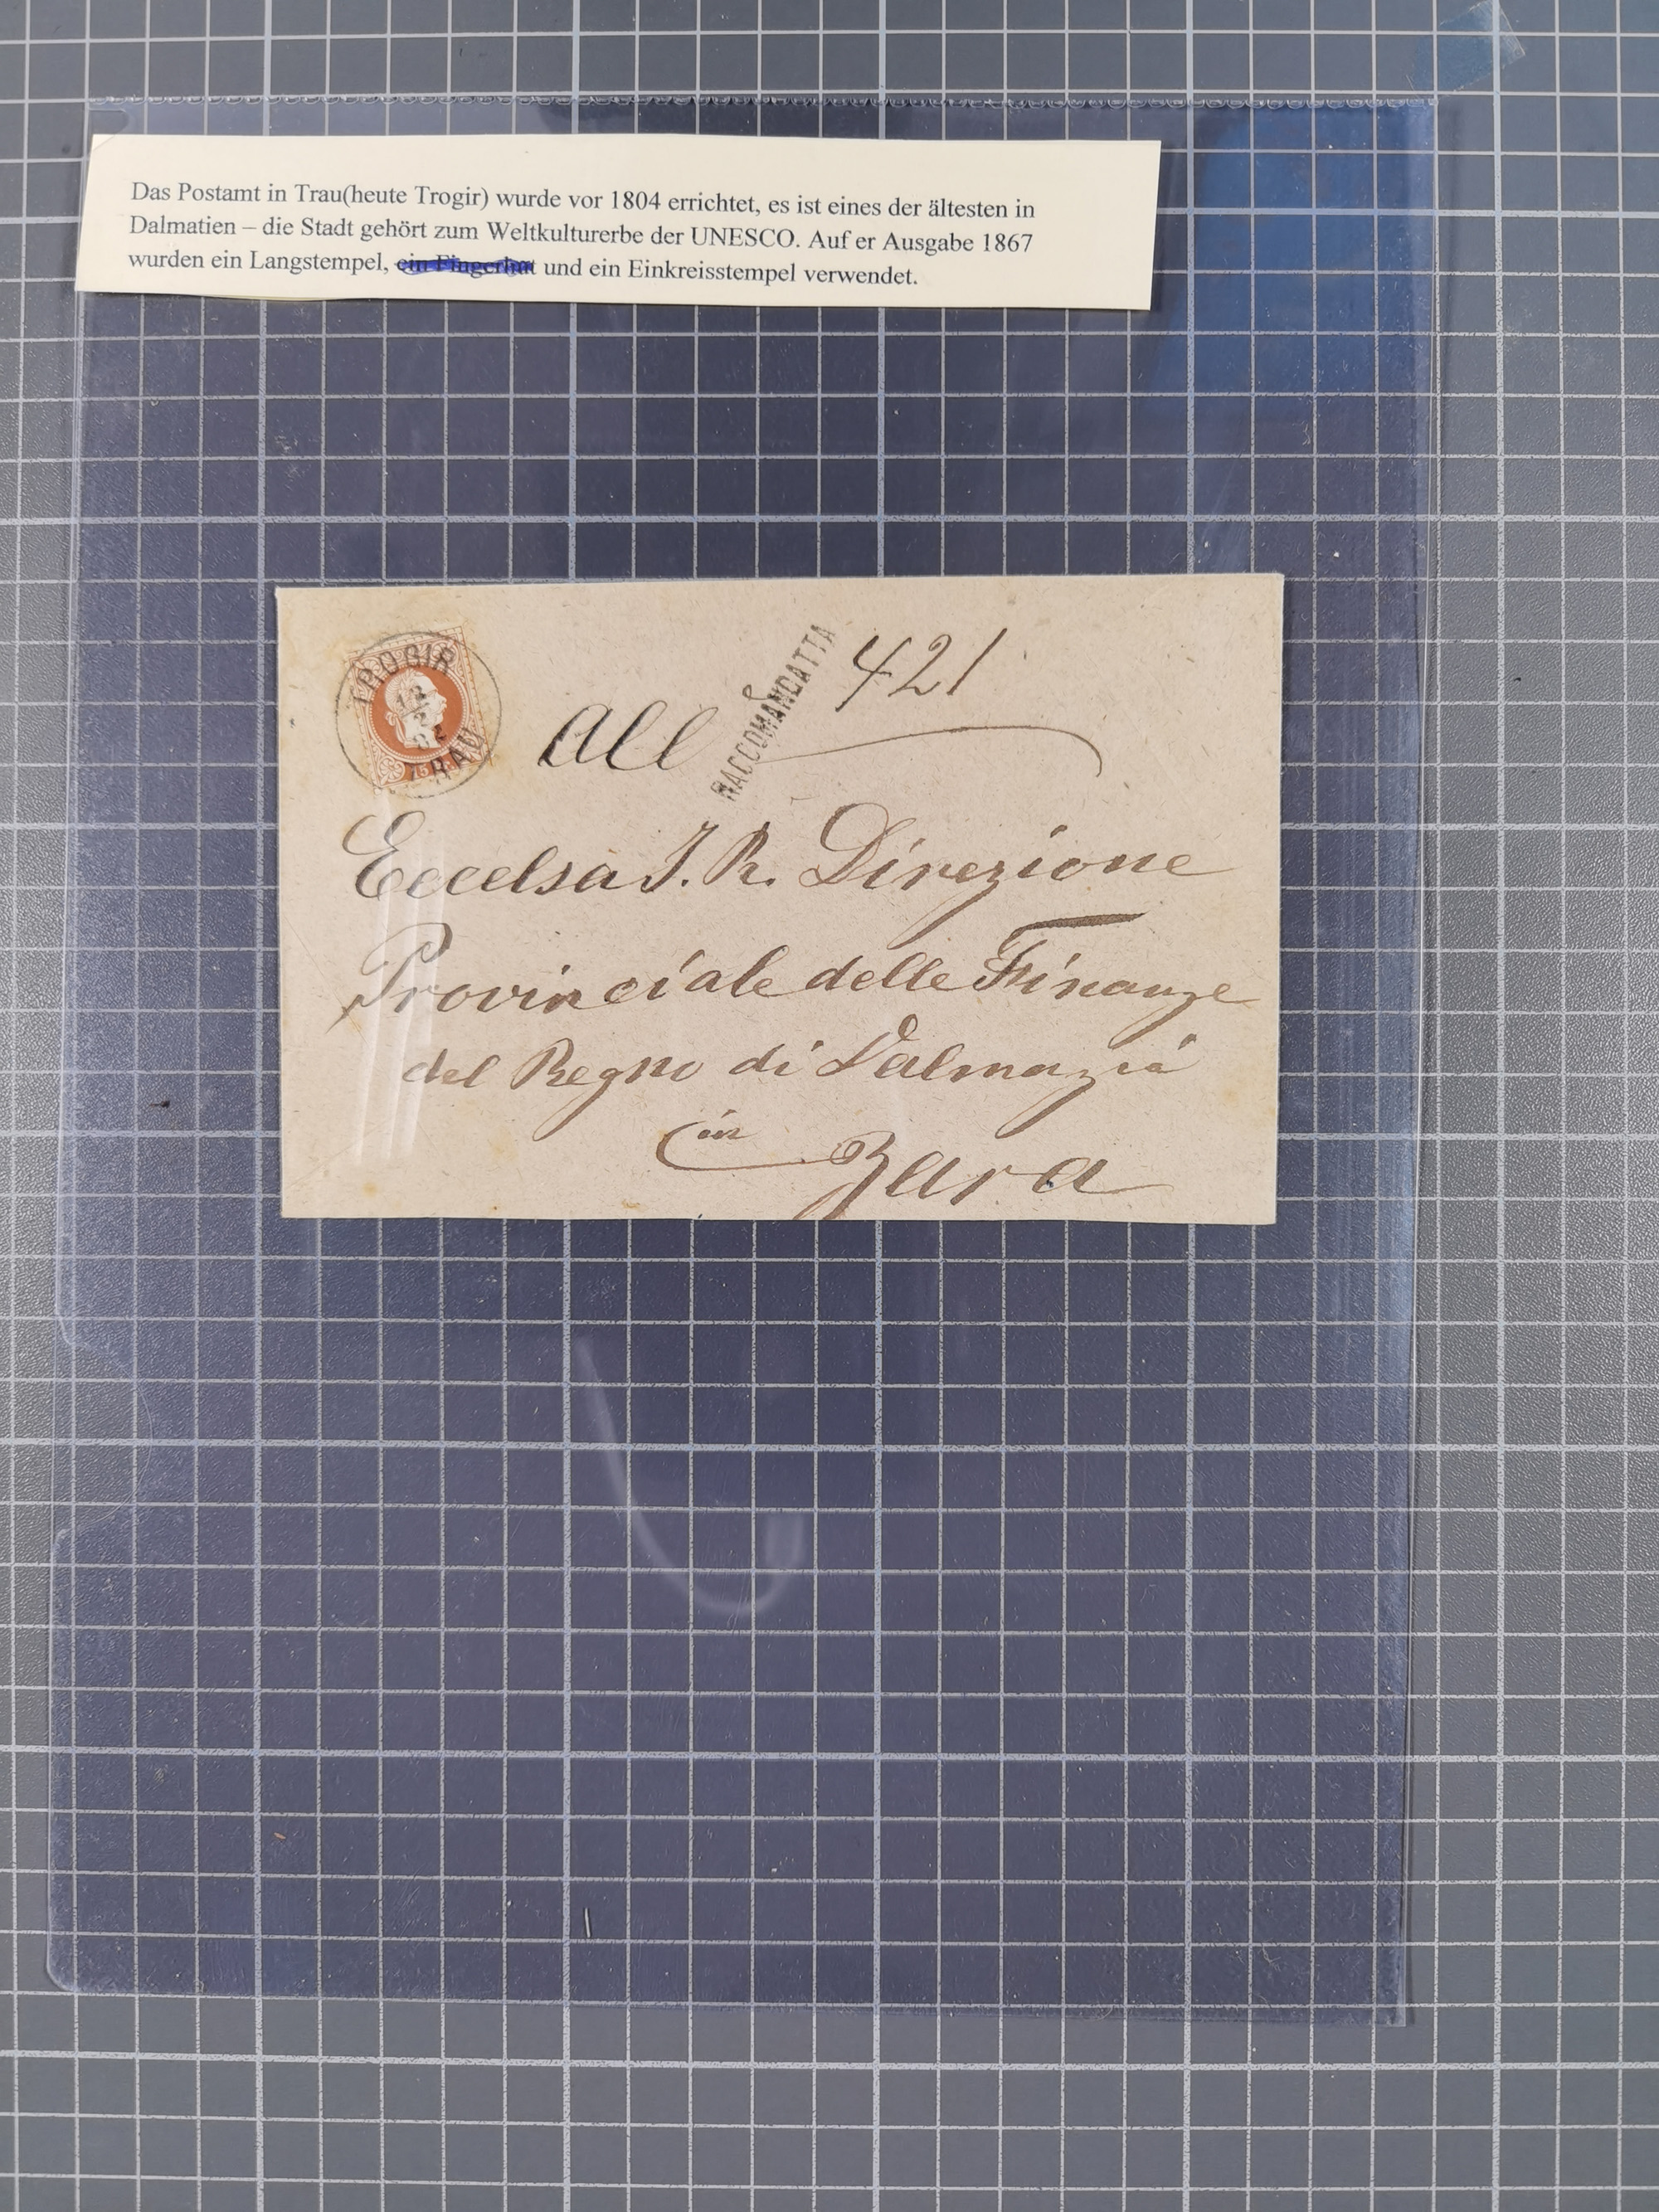 Das Postamt in Trau(heute Trogir) wurde vor 1804 errichtet, es ist eines der ältesten in
Dalmatien – die Stadt gehört zum Weltkulturerbe der UNESCO. Auf er Ausgabe 1867
wurden ein Langstempel, ein Fingerhut und ein Einkreisstempel verwendet.
TROGIR
TRAU
RACCOMANDATTA
421
All
Eccelsa I. R. Direzione
Provinciale delle Finanze
del Regno di Dalmazia
in Zara